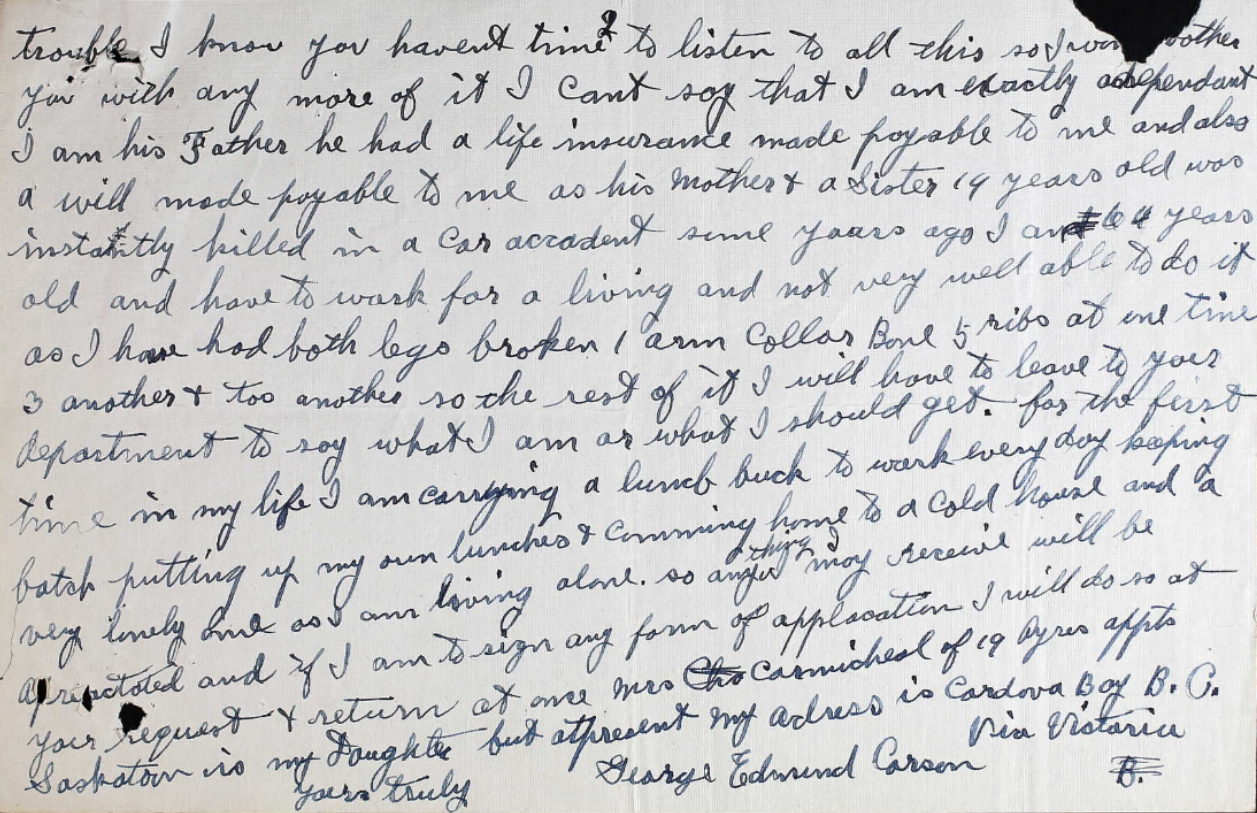 trouble I know you havent time to listen to all this so I wont bother
you with any more of it I cant say that I am exactly a dependant
I am his Father he had a life insurance made payable to me and also
a will made payable to me as his Mother & a Sister 19 years old was
instantly killed in a Car accadent some years ago I am 64 years
old and have to work for a living and not very well able to do it
as I have had both legs broken 1 arm Collar Bone 5 ribs at one time
3 another & too another so the rest of it I will have to leave to your
department to say what I am or what I should get. for the first
time in my life I am carrying a lunch buck to work every day keeping
batch putting up my own lunches & comming home to a cold house and a
very lonely one as I am living alone. so any thing I may receive will be
apreactoted and if I am to sign any form of applacation I will do so at
your request & return at once Mrs Carmicheal of 19 Ayres appts
Saskatoon is my Daughter but at present my adress is Cordova Bay B. C.
Via Victoria
yours truly George Edmund Carson
B.